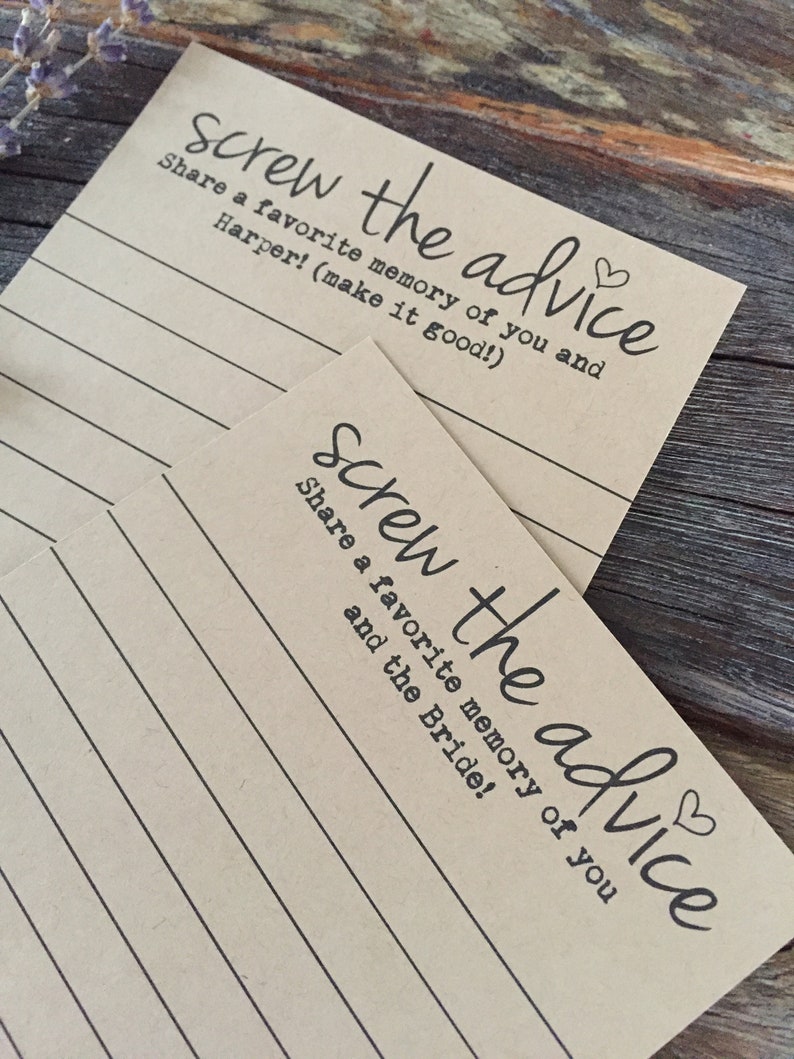 screw the advice
Share a favorite memory of you and
Harper! (make it good!)
screw the advice
Share a favorite memory of you
and the Bride!